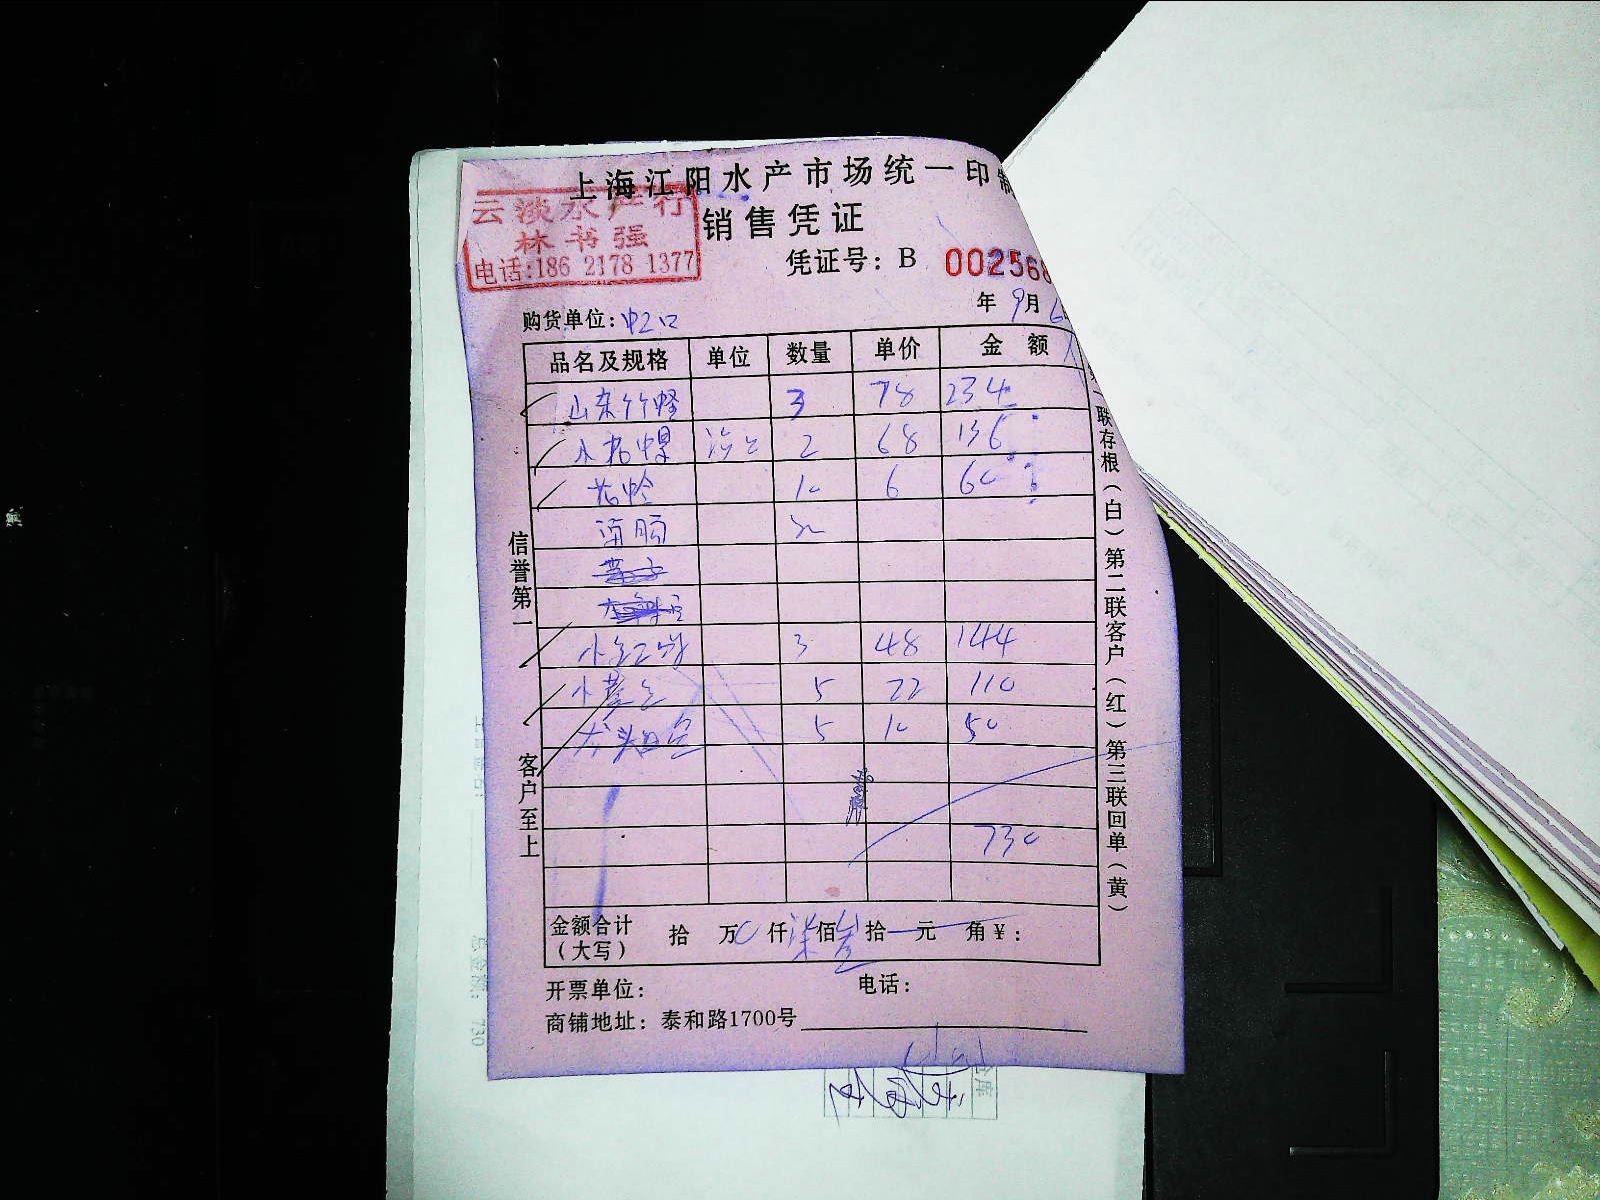 上海江阳水产市场统一印制
云淡水产行
林书强
电话:186 2178 1377
销售凭证
凭证号: B 002568
年 9月 6
购货单位:
品名及规格 单位 数量 单价 金 额
山东竹蛏 3 78 234
2 68 136
花蛤 10 6 60
3 48 144
小黄鱼 5 22 110
龙头鱼 5 10 50
730
金额合计 (大写) 拾 万 0 仟 柒 佰 叁 拾 元 角 ¥:
开票单位: 电话:
商铺地址: 泰和路1700号
信誉第一
客户至上
联存根(白)第二联客户(红)第三联回单(黄)
730
仓库